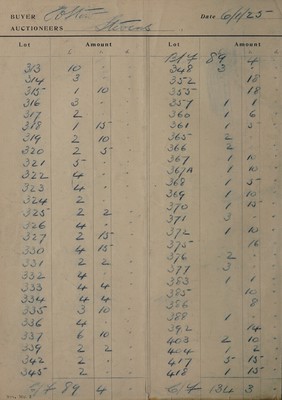 BUYER Date 6/1/25
AUCTIONEERS Stevens
Lot Amount Lot Amount
B/f 89 4
313 10 - 348 3 -
314 3 - 352 18
315 1 10 355 18
316 3 - 357 1 1
317 2 - 360 1 6
318 1 15 361 1 5
319 2 10 365 2 -
320 2 5 366 2
321 5 - 367 1 10
322 4 - 367A 1 10
323 4 - 368 1 5
324 2 369 1 10
325 2 2 370 1 15
326 4 - 371 3
327 2 15 372 1 10
330 4 15 375 16
331 2 2 376 2 -
332 4 - 377 3
333 4 4 383 1 1
334 4 4 385 10
335 3 10 386 8
336 4 - 388 1 -
337 6 10 392 14
339 2 2 403 2 10
342 2 - 404 1 2
345 2 417 5 15
418 1 15
C/f 89 4 C/f 134 3